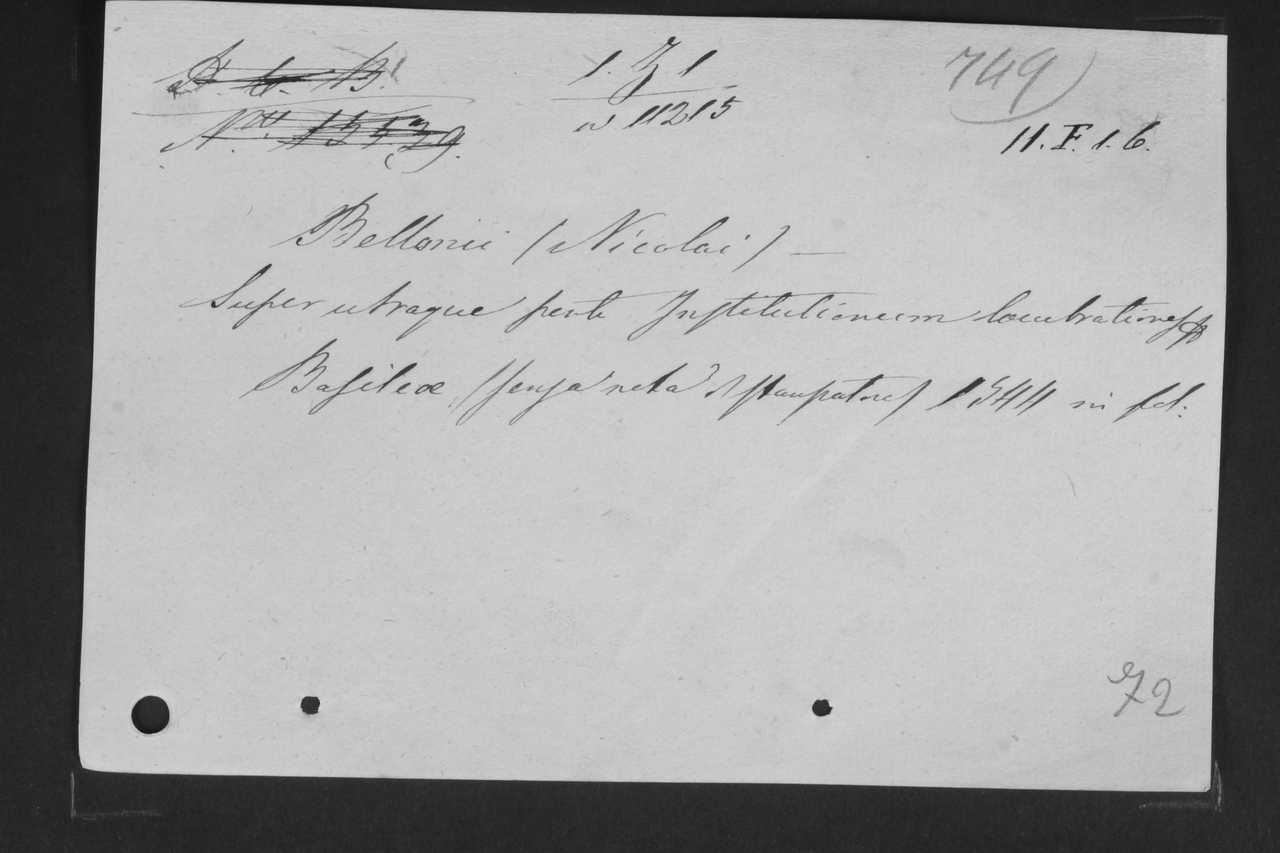 1. Z 1
11215
749
11. F. 1. 6.
Bellonii (Nicolai) —
Super utraque parte Institutionum locubrationes
Basileæ (senza nota di stampatore) 1544 in fol:
72